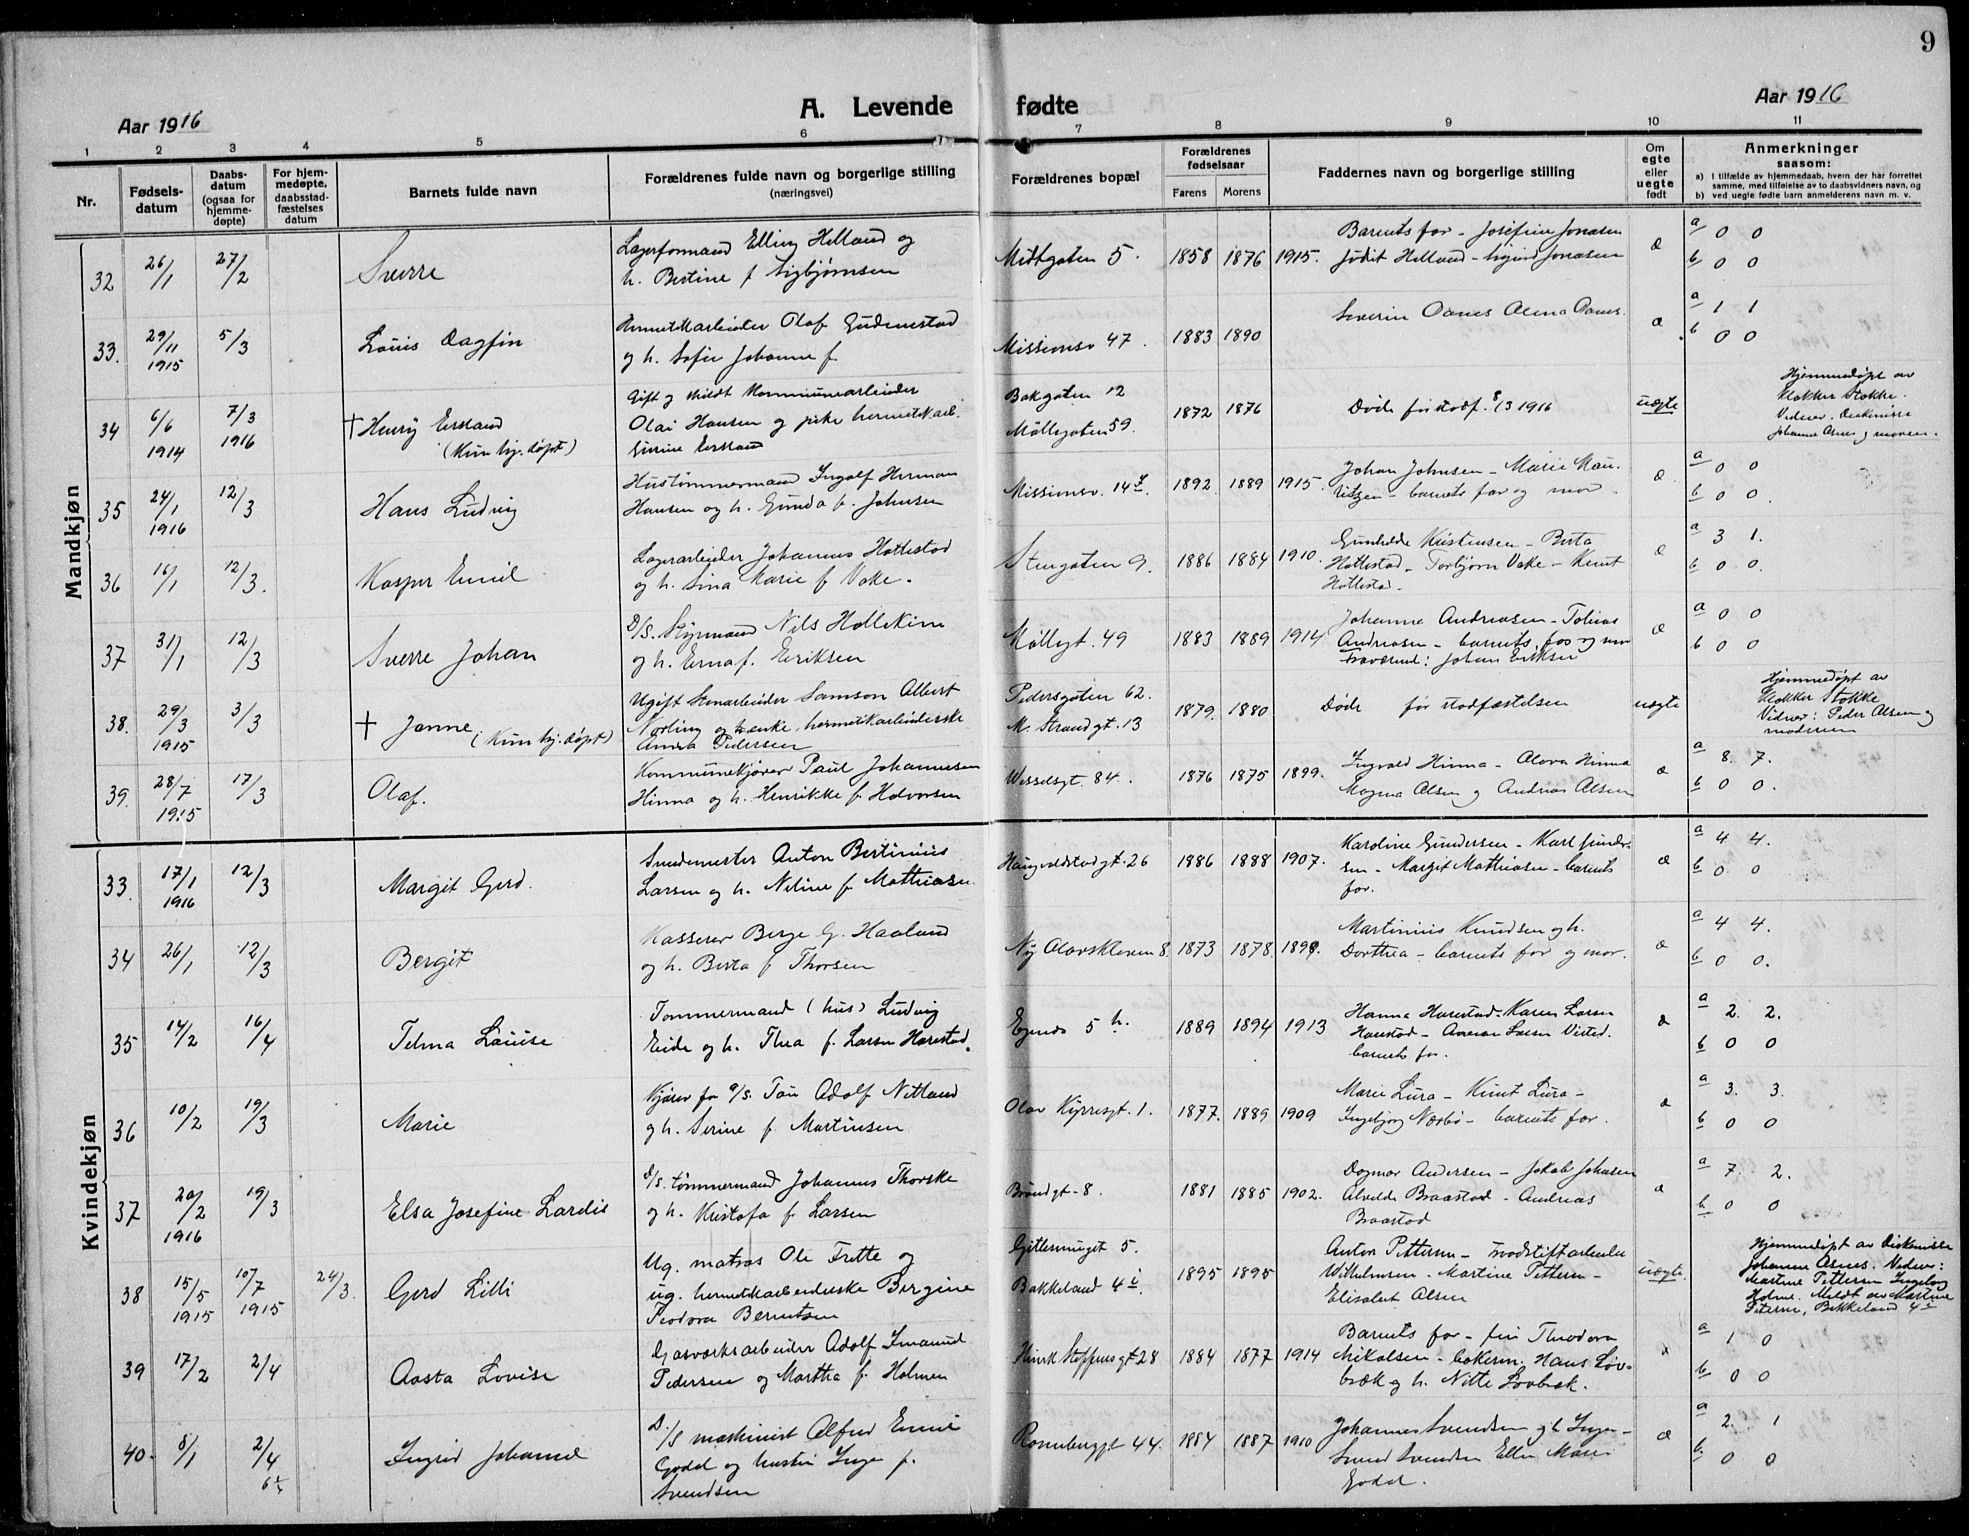 9
Aar 1916
A. Levende fødte
Aar 1916
1 2 3 4 5 6 7 8 9 10 11
Nr.
Fødsels-
datum
Daabs-
datum
(ogsaa for
hjemme-
døpte)
For hjem-
medøpte,
daabsstad-
fæstelses
datum
Barnets fulde navn
Forældrenes fulde navn og borgerlige stilling
(næringsvei)
Forældrenes bopæl
Forældrenes
fødselsaar
Farens Morens
Faddernes navn og borgerlige stilling
Om
egte
eller
uegte
født
Anmerkninger
saasom:
a) I tilfælde av hjemmedaab, hvem der har forrettet
samme, med tilføielse av to daabsvidners navn, og
b) ved uegte fødte barn anmelderens navn m. v.
Mandkjøn
32 26/1 27/2 Sverre
Lagerformand Elling Helland og
h. Bertine f. Sigbjørnsen
Midtgaten 5. 1858 1876 1915.
Barnets far - Josefine Jonasen
Judit Helland - Sigurd Jonasen
æ
a 0 0
b 0 0
33. 29/11 1915 5/3 Louis Dagfin
Hermetikarbeider Olaf Gudmestad
og h. Sofie Johanne f.
Missionsv 47. 1883 1890
Severin Oanes Alma Oanes.
æ
a 1 1
b 0 0
34 6/6 1914 7/3 1916 † Henry Ersland
(Kun hj. døpt)
Gift og skildt kommunearbeider
Olai Hansen og pike hermetikarb.
Ersland
Bakgaten 12
Møllegaten 59.
1872 1876
Døde før stadf. 8/3 1916
uegte
Hjemmedøpt av
klokker Stokke.
Vidner: Diakonisse
Johanne Asnes og moren.
35 24/1 1916 12/3 Hans Ludvig
Hustømmermand Ingolf Herman
Hansen og h. Gunda f. Johnsen
Missionsv. 14 1892 1889 1915.
Johan Johnsen - Marie Mau-
ritzen - barnets far og mor.
æ
a 0 0
b 0 0.
36 16/1 12/3. Kasper Emil
Lagerarbeider Johannes Hottestad
og h. Sina Marie f. Vake.
Stengaten 9. 1886 1884 1910.
Gunhilde Kristensen - Berta
Hottestad - Torbjørn Vake - Knut
Hottestad.
æ
a 3 1.
b 0 0.
37 31/1 12/3 Sverre Johan
D/S. Styrmand Nils Hollekim
og h. Erna f. Eriksen
Møllegt. 49 1883 1889 1914
Johanne Andreasen - Tobias
Andreasen - barnets far og mor
Fraværende: Johan Eriksen
æ
a 0 0
b 0 0
38. 29/3 1915 3/3 † Janne (Kun hj. døpt)
Ugift Stenarbeider Samson Albert
Norling og enke, hermetikarbeiderske
Anna Pedersen
Pedersgaten 62.
N. Strandgt. 13
1879. 1880
Døde før stadfæstelsen
uegte
Hjemmedøpt av
Klokker Stokke
Vidner: Peder Alsen og
moderen
39. 28/7 1915 17/3 Olaf.
Kommunekjører Paul Johannesen
Hinna og h. Henrikke f. Halvorsen
Wesselsgt. 84. 1876 1875 1899.
Ingvald Hinna - Olava Hinna
Magna Alsen og Andreas Alsen
æ
a 8. 7.
b 0 0.
Kvindekjøn
33. 17/1 1916 12/3 Margit Gerd.
Smedmester Anton Bertinius
Larsen og h. Neline f. Mathiasen.
Haugvaldstadgt. 26 1886 1888 1907.
Karoline Gundersen - Karl Gunder-
sen - Margit Mathiasen - barnets
far.
æ
a 4 4.
b 0 0
34 26/1 12/3 Bergit
Kasserer Berge G. Haaland
og h. Berta f. Thorsen
Ny Olavskleven 8. 1873 1878. 1898.
Martinius Knudsen og h.
Dorthea - barnets far og mor.
æ
a 4 4.
b 0 0.
35 14/2 16/4 Telma Louise
Tømmermand (hus) Ludvig
Eide og h. Thea f. Larsen Harestad.
Egnds 5 h. 1889 1894 1913
Hanna Harestad - Karen Larsen
Harestad - Larsen Visted.
barnets far.
æ
a 2. 2.
b 0 0
36 10/2 19/3 Marie
Kjører for A/S. Tou Adolf Netland
og h. Serine f. Martinsen.
Olav Kyrresgt. 1. 1877. 1889 1909
Marie Lura - Knut Lura -
Ingebjørg Nærbø - barnets far.
æ
a 3. 3.
b 0 0
37 20/2 1916 19/3 Elsa Josefine Lardis
D/S. tømmermand Johannes Thorske
og h. Kristofa f. Larsen
Brøndgt - 8. 1881 1885 1902.
Dagmar Andersen - Jakob Johnsen
Alvilde Braastad - Andreas
Braastad
æ
a 7. 2.
b 0 0
38 15/5 1915 10/7 1915 24/3. Gerd Lilli
Ug. matros Ole Frette og
ug. hermetikarbeiderske Bergine
Teodora Berntsen
Gitlesmuget 5.
Bakkeland 4
1895 1895
Anton Pettersen -
Wilhelmsen - Martine Pettersen -
Elisabet Alsen
uegte.
Hjemmedøpt av Diakonisse
Johanne Asnes. Vidner:
Martine Pettersen Ingeborg
Holme. Meldt av Martine
Petersen, Bakkeland 4
39 17/2 2/4 Aasta Lovise
Gasverksarbeider Adolf Imanuel
Pedersen og Martha f. Holmen
Henrik Steffensgt 28 1884 1877 1914
Barnets far - frk Theodora
Nikolsen - bakerm. Hans Løv-
bræk og h. Nitte Løvbræk.
æ
a 1 0
b 0 0
40. 8/1 2/4 Ingrid Johanne
D/S maskinist Alfred Emil
Godal og hustru Inga f.
Svendsen
Rosenberggt 44. 1884 1887 1910
Johannes Svendsen og h Inga -
Svend Svendsen Ellen Marie
Godal.
æ
a 2. 1
b 0 0